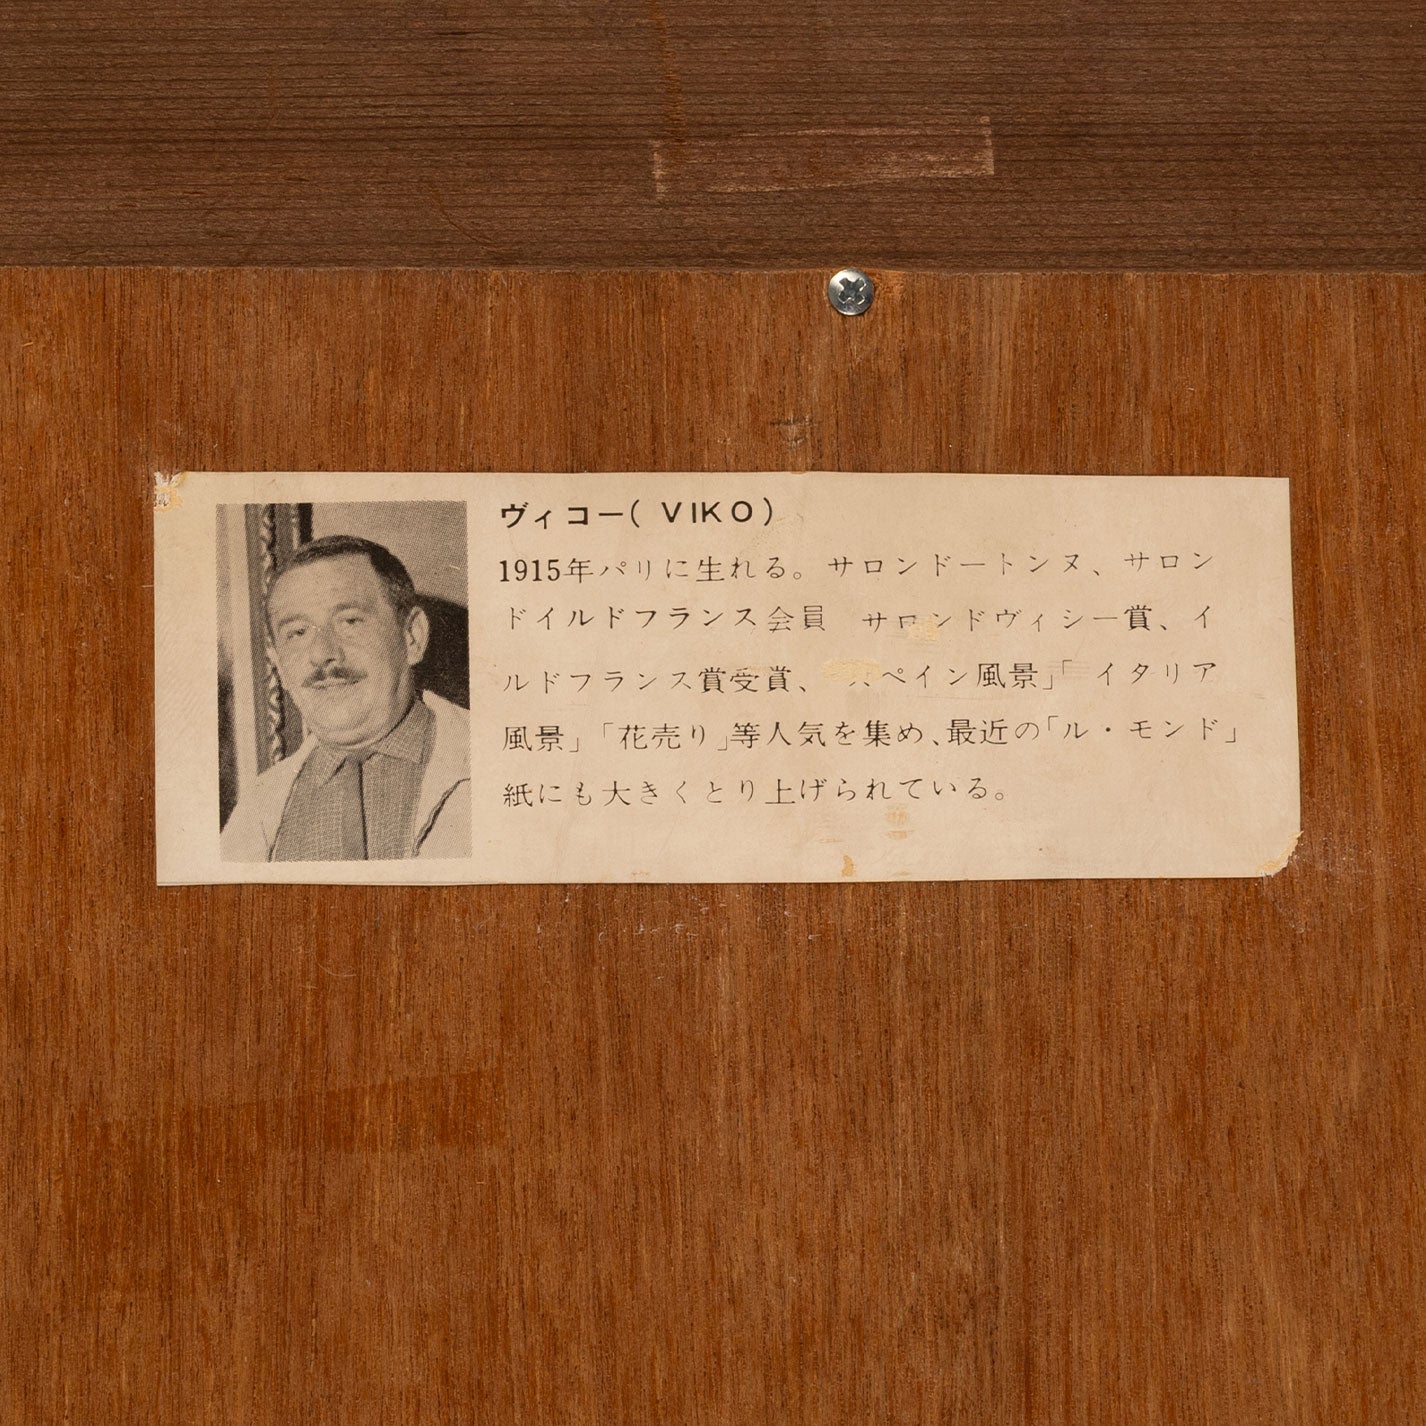 ヴィコー( VIKO )
1915年パリに生れる。サロンドートンヌ、サロン
ドイルドフランス会員 サロンドヴィシー賞、イ
ルドフランス賞受賞、 スペイン風景」「イタリア
風景」「花売り」等人気を集め、最近の「ル・モンド」
紙にも大きくとり上げられている。